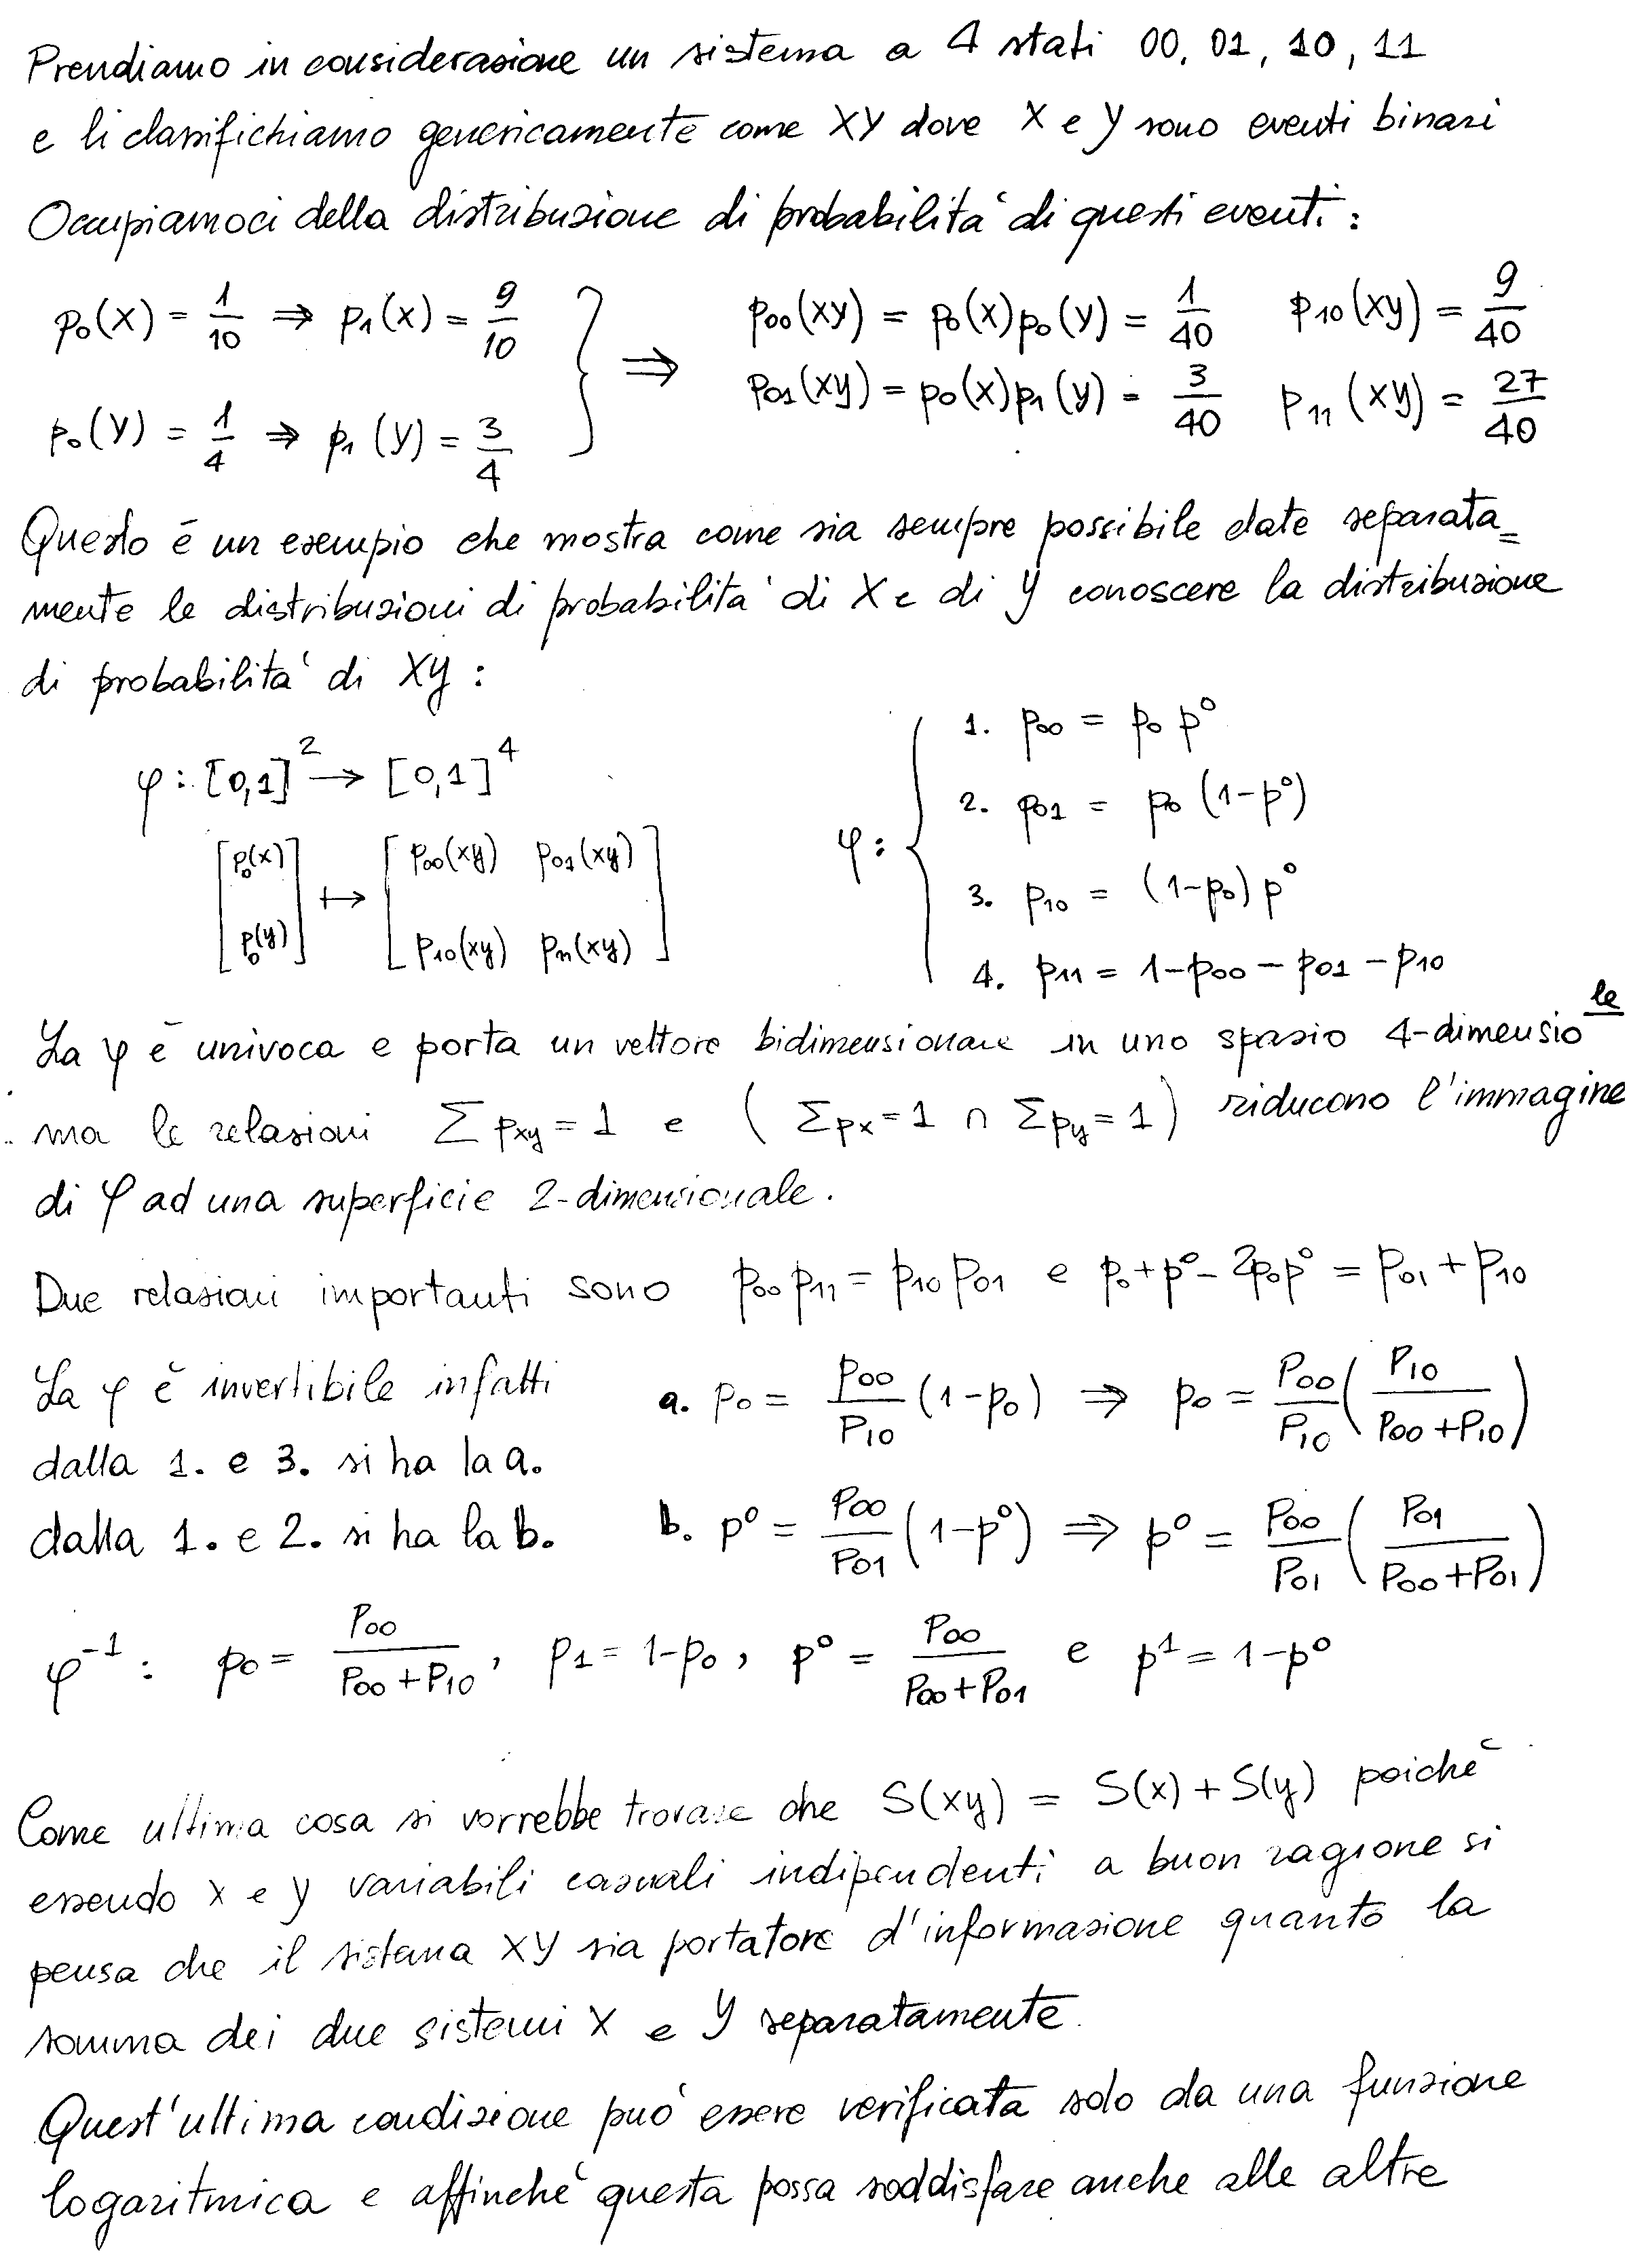 Prendiamo in considerazione un sistema a 4 stati 00, 01, 10, 11
e li classifichiamo genericamente come XY dove X e Y sono eventi binari
Occupiamoci della distribuzione di probabilità di questi eventi:
p₀(X) = 1/10 ⇒ p₁(X) = 9/10
p₀(Y) = 1/4 ⇒ p₁(Y) = 3/4
} ⇒
p₀₀(XY) = p₀(X)p₀(Y) = 1/40 p₁₀(XY) = 9/40
p₀₁(XY) = p₀(X)p₁(Y) = 3/40 p₁₁(XY) = 27/40
Questo è un esempio che mostra come sia sempre possibile date separata=
mente le distribuzioni di probabilità di X e di Y conoscere la distribuzione
di probabilità di XY:
φ: [0,1]² → [0,1]⁴
[p₀(X) p₀(Y)] ↦ [p₀₀(XY) p₀₁(XY) p₁₀(XY) p₁₁(XY)]
φ: {
1. p₀₀ = p₀ p⁰
2. p₀₁ = p₀ (1-p⁰)
3. p₁₀ = (1-p₀) p⁰
4. p₁₁ = 1-p₀₀-p₀₁-p₁₀
La φ è univoca e porta un vettore bidimensionale in uno spazio 4-dimensio le
ma le relazioni Σ pxy = 1 e ( Σpx = 1 ∩ Σpy = 1 ) riducono l'immagine
di φ ad una superficie 2-dimensionale.
Due relazioni importanti sono p₀₀ p₁₁ = p₁₀ p₀₁ e p₀+p⁰-2p₀p⁰ = p₀₁+p₁₀
La φ è invertibile infatti
dalla 1. e 3. si ha la a.
dalla 1. e 2. si ha la b.
a. p₀ = p₀₀/p₁₀ (1-p₀) ⇒ p₀ = p₀₀/p₁₀ (p₁₀/(p₀₀+p₁₀))
b. p⁰ = p₀₀/p₀₁ (1-p⁰) ⇒ p⁰ = p₀₀/p₀₁ (p₀₁/(p₀₀+p₀₁))
φ⁻¹: p₀ = p₀₀/(p₀₀+p₁₀), p₁ = 1-p₀, p⁰ = p₀₀/(p₀₀+p₀₁) e p¹ = 1-p⁰
Come ultima cosa si vorrebbe trovare che S(xy) = S(x) + S(y) poiché
essendo X e Y variabili casuali indipendenti a buon ragione si
pensa che il sistema XY sia portatore d'informazione quanto la
somma dei due sistemi X e Y separatamente.
Quest'ultima condizione può essere verificata solo da una funzione
logaritmica e affinché questa possa soddisfare anche alle altre